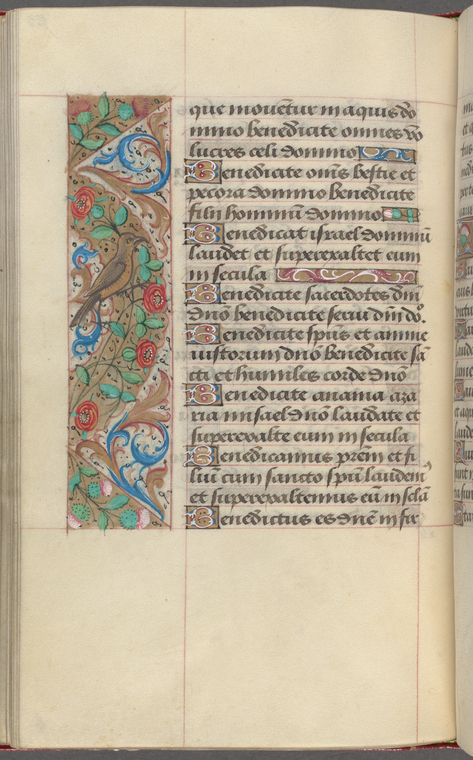 que mouētur in aquis do
mino benedicite omnes vo
lucres celi domino
Benedicite om̄s bestie et
pecora domino benedicite
filii hominū domino
Benedicat israel dominū
laudet et superexaltet eum
in secula
Benedicite sacerdotes dn̄i
dn̄o benedicite serui dn̄i do.
Benedicite sp̄us et anime
iustorum dn̄o benedicite sā
cti et humiles corde dn̄o
Benedicite anania aza
ria misael dn̄o laudate et
superexalte eum in secula
Benedicamus p̄rem et fi
liū cum sancto sp̄u laudem⁹
et superexaltemus eū in sc̄la
Benedictus es dn̄e in fir